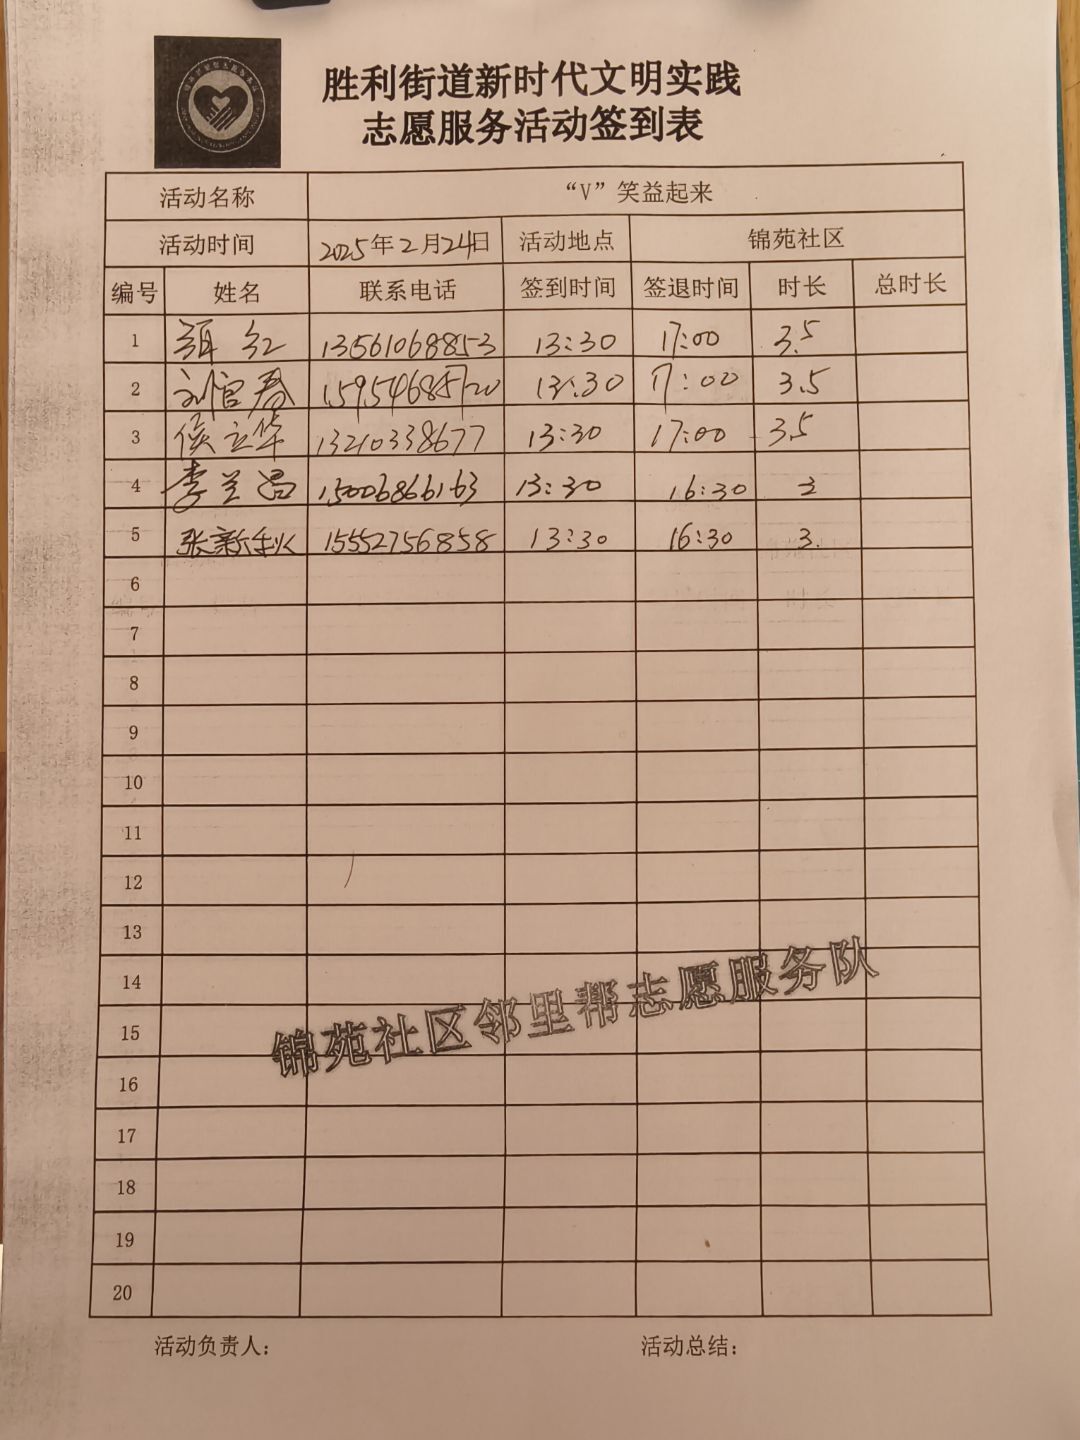 胜利街道新时代文明实践
志愿服务活动签到表
活动名称 “V”笑益起来
活动时间 2025年2月24日 活动地点 锦苑社区
编号 姓名 联系电话 签到时间 签退时间 时长 总时长
1 红 13561068853 13:30 17:00 3.5
2 刘官春 15954685720 13:30 17:00 3.5
3 侯立华 13210338677 13:30 17:00 3.5
4 李兰昌 15006866163 13:30 16:30 3
5 张新利 15552756858 13:30 16:30 3
6
7
8
9
10
11
12
13
14
15
16
17
18
19
20
锦苑社区邻里帮志愿服务队
活动负责人: 活动总结: